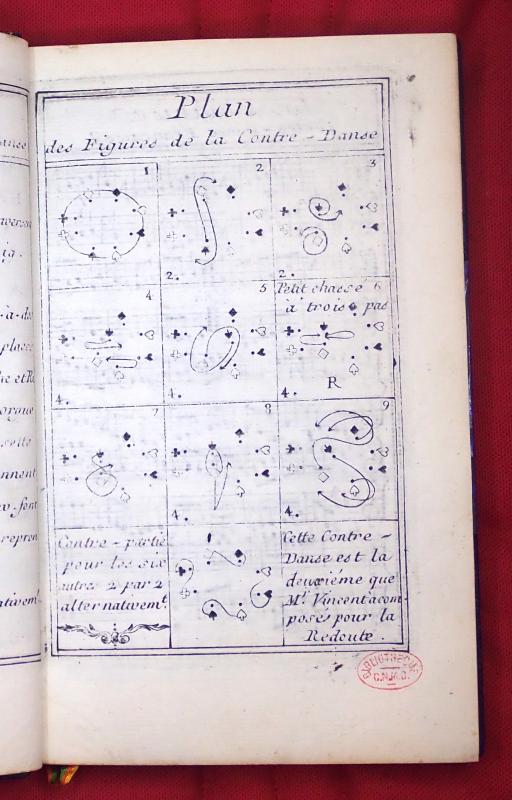 Plan
des Figures de la Contre-Danse
1
2
2.
3
2.
4
4.
5
4.
Petit chassé 6
à trois pas
R
4.
7
8
4.
9
4.
Contre-partie
pour les six
autres 2 par 2
alternativemt.
Cette Contre-
Danse est la
deuxiéme que
Mr. Vincent a com-
posés pour la
Redoute.
BIBLIOTHEQUE